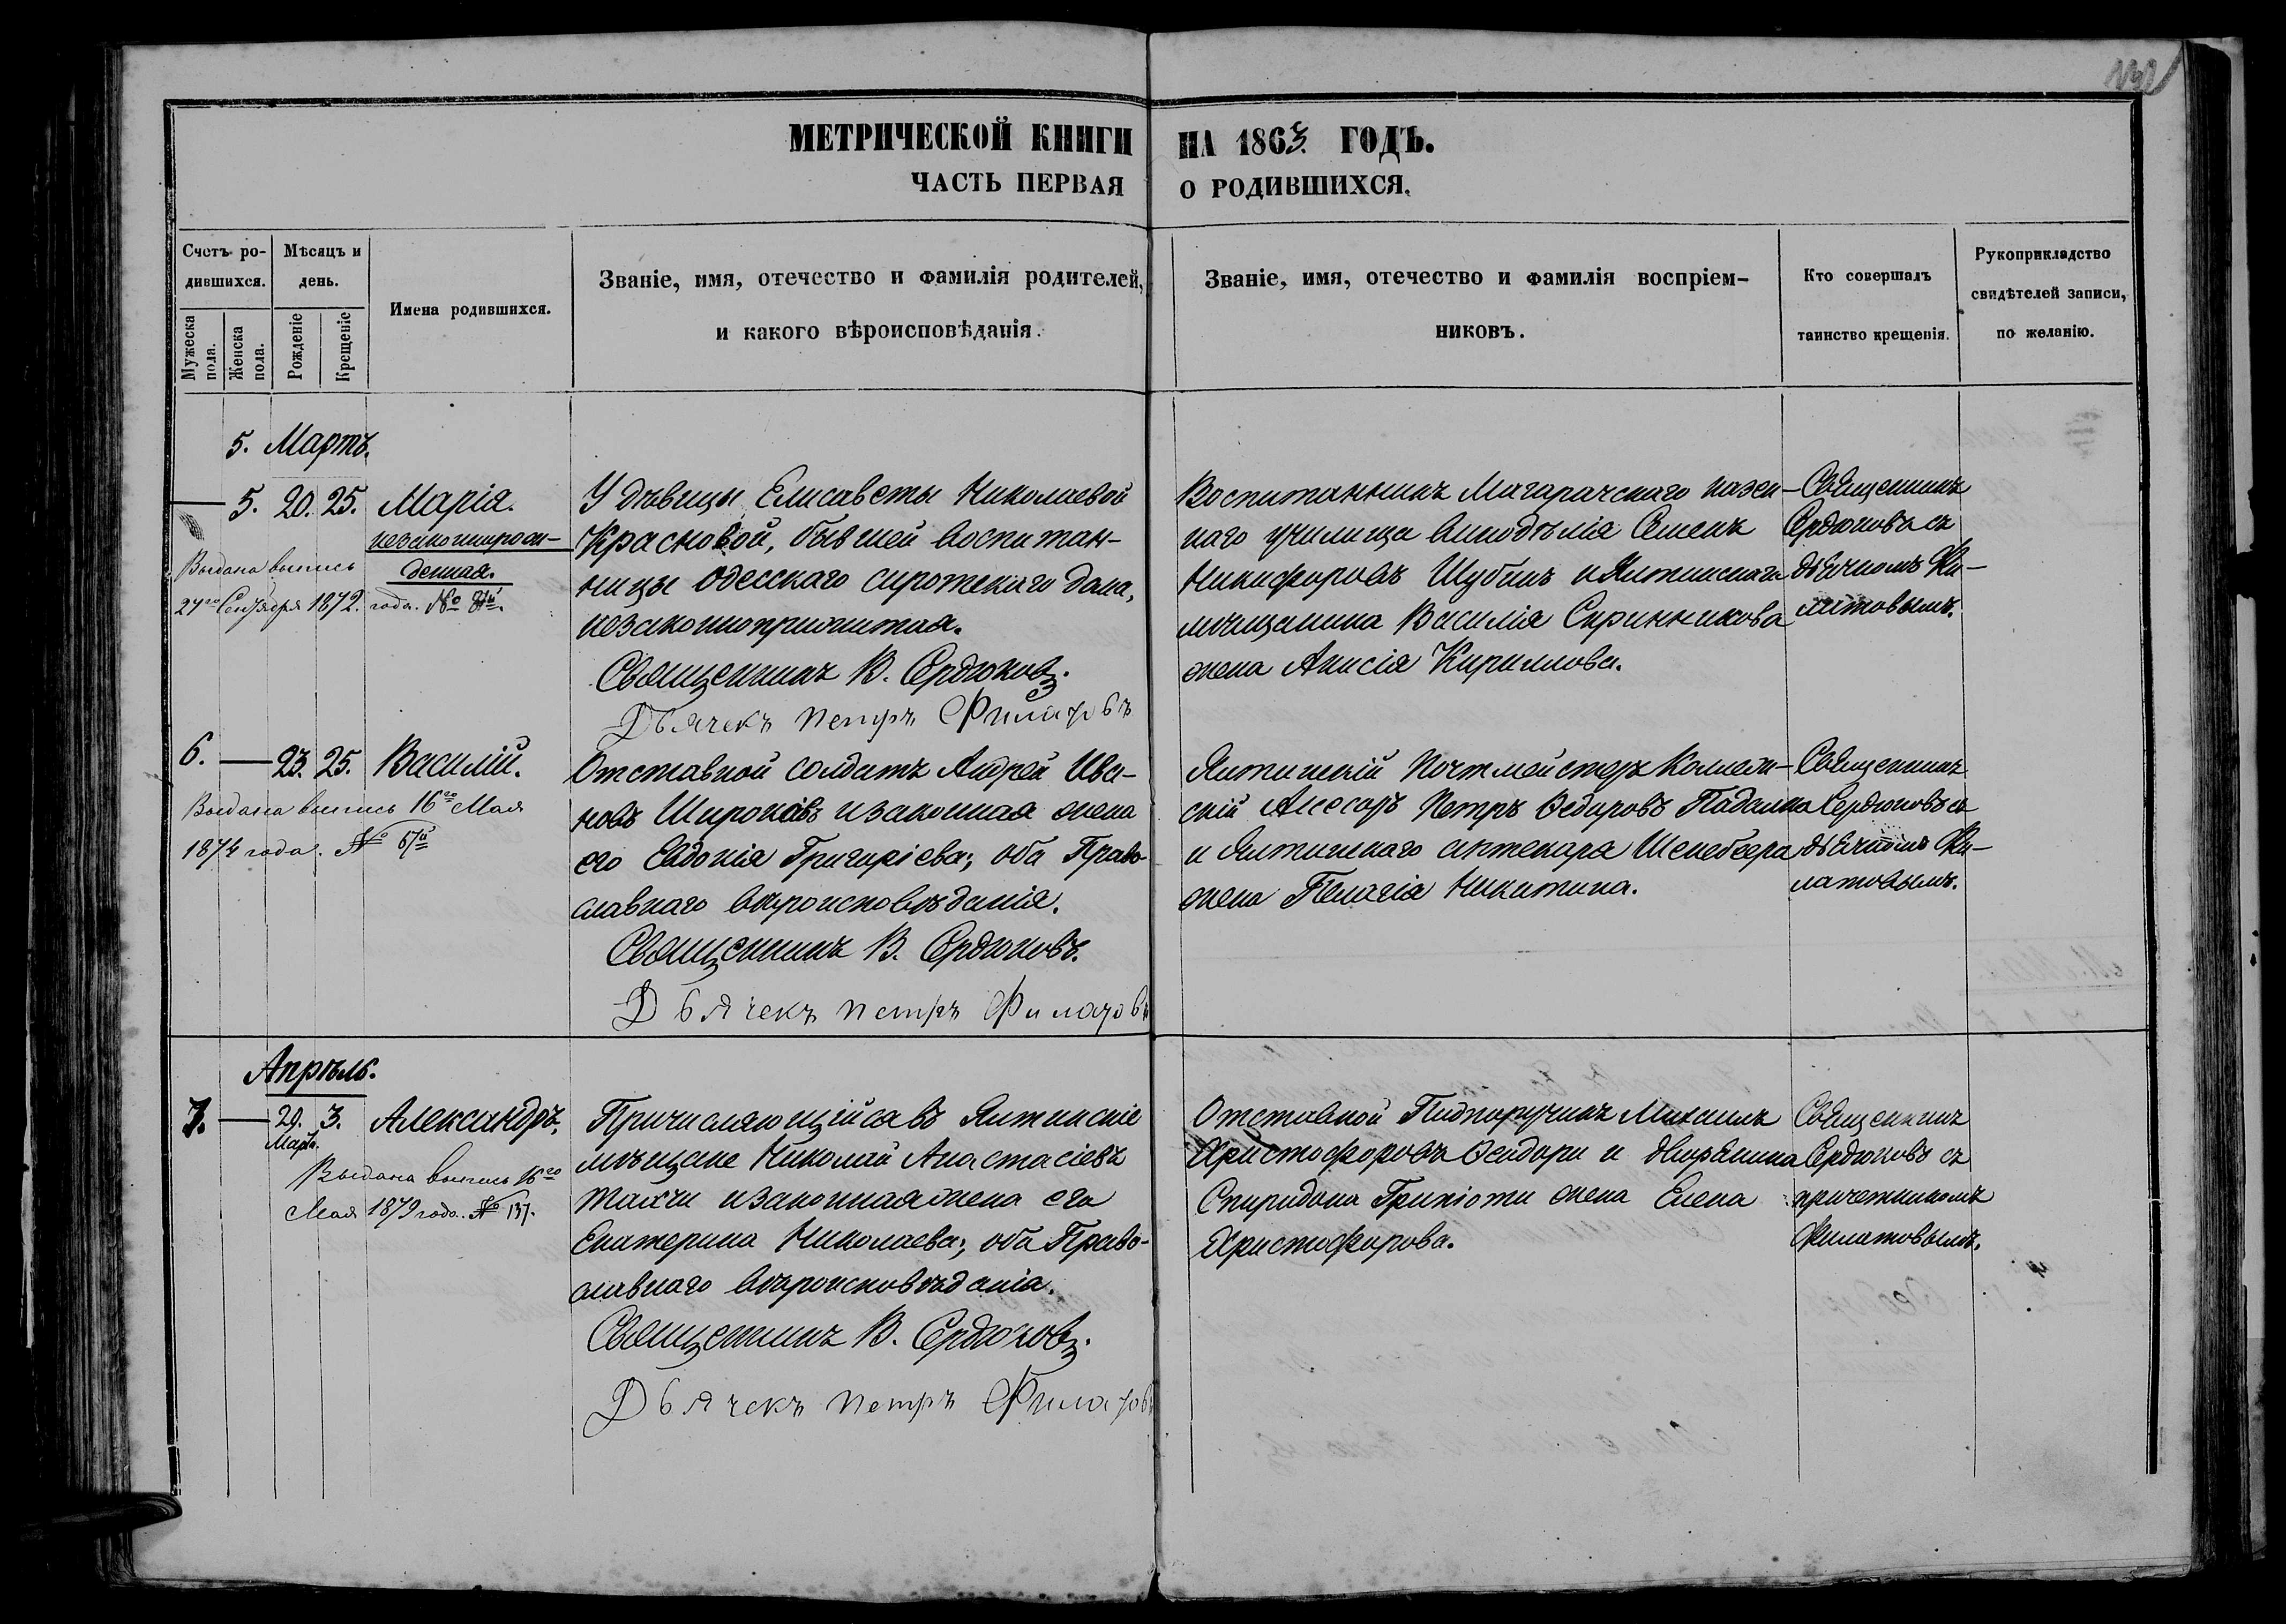 МЕТРИЧЕСКОЙ КНИГИ НА 1863 ГОДЪ.
ЧАСТЬ ПЕРВАЯ О РОДИВШИХСЯ.
Счетъ ро-
дившихся.
Мужеска пола.
Женска пола.
Мѣсяцъ и
день.
Рожденіе
Крещеніе
Имена родившихся.
Званіе, имя, отечество и фамилія родителей,
и какого вѣроисповѣданія.
Званіе, имя, отечество и фамилія воспріем-
никовъ.
Кто совершалъ
таинство крещенія.
Рукоприкладство
свидѣтелей записи,
по желанію.
5. Мартъ.
5. 20. 25. Марія.
незаконнорож-
денная.
Выдана выпись
27го Сентября 1872. года. №
У дѣвицы Елисаветы Николаевой
Красновой, бывшей воспитан-
ницы Одесскаго сиротскаго дома,
незаконноприжитая.
Священникъ В. Сердюковъ.
Дьячекъ Петръ Филатовъ
Воспитанникъ Магарачскаго казен-
наго училища винодѣлія Семенъ
Никифоровъ Шубинъ и Ялтинскаго
мѣщанина Василія Скринникова
жена Анисія Кириллова.
Священникъ
Сердюковъ съ
дьячкомъ Фи-
латовымъ.
6. 23. 25. Василій.
Выдана выпись 16го Мая
1874 года. № 67й
Отставной солдатъ Андрей Ива-
новъ Широковъ и законная жена
его Евдокія Григоріева; оба Право-
славнаго вѣроисповѣданія.
Священникъ В. Сердюковъ.
Дьячекъ Петръ Филатовъ
Ялтинскій Почтмейстеръ Коллеж-
скій Ассесоръ Петръ Ѳедоровъ Падалка
и Ялтинскаго аптекаря
жена Пелагія Никитина.
Священникъ
Сердюковъ съ
дьячкомъ Фи-
латовымъ.
Апрѣль.
7. 29. 3. Александръ.
Марта.
Выдана выпись 16го
Мая 1879 года. № 137.
Причисляющійся въ Ялтинскіе
мѣщане Николай Анастасіевъ
и законная жена его
Екатерина Николаева; оба Право-
славнаго вѣроисповѣданія.
Священникъ В. Сердюковъ.
Дьячекъ Петръ Филатовъ
Отставной Подпоручикъ Михаилъ
Христофоровъ Ѳеидори и дворянина
Спиридона жена Елена
Христофорова.
Священникъ
Сердюковъ съ
причетникомъ
Филатовымъ.